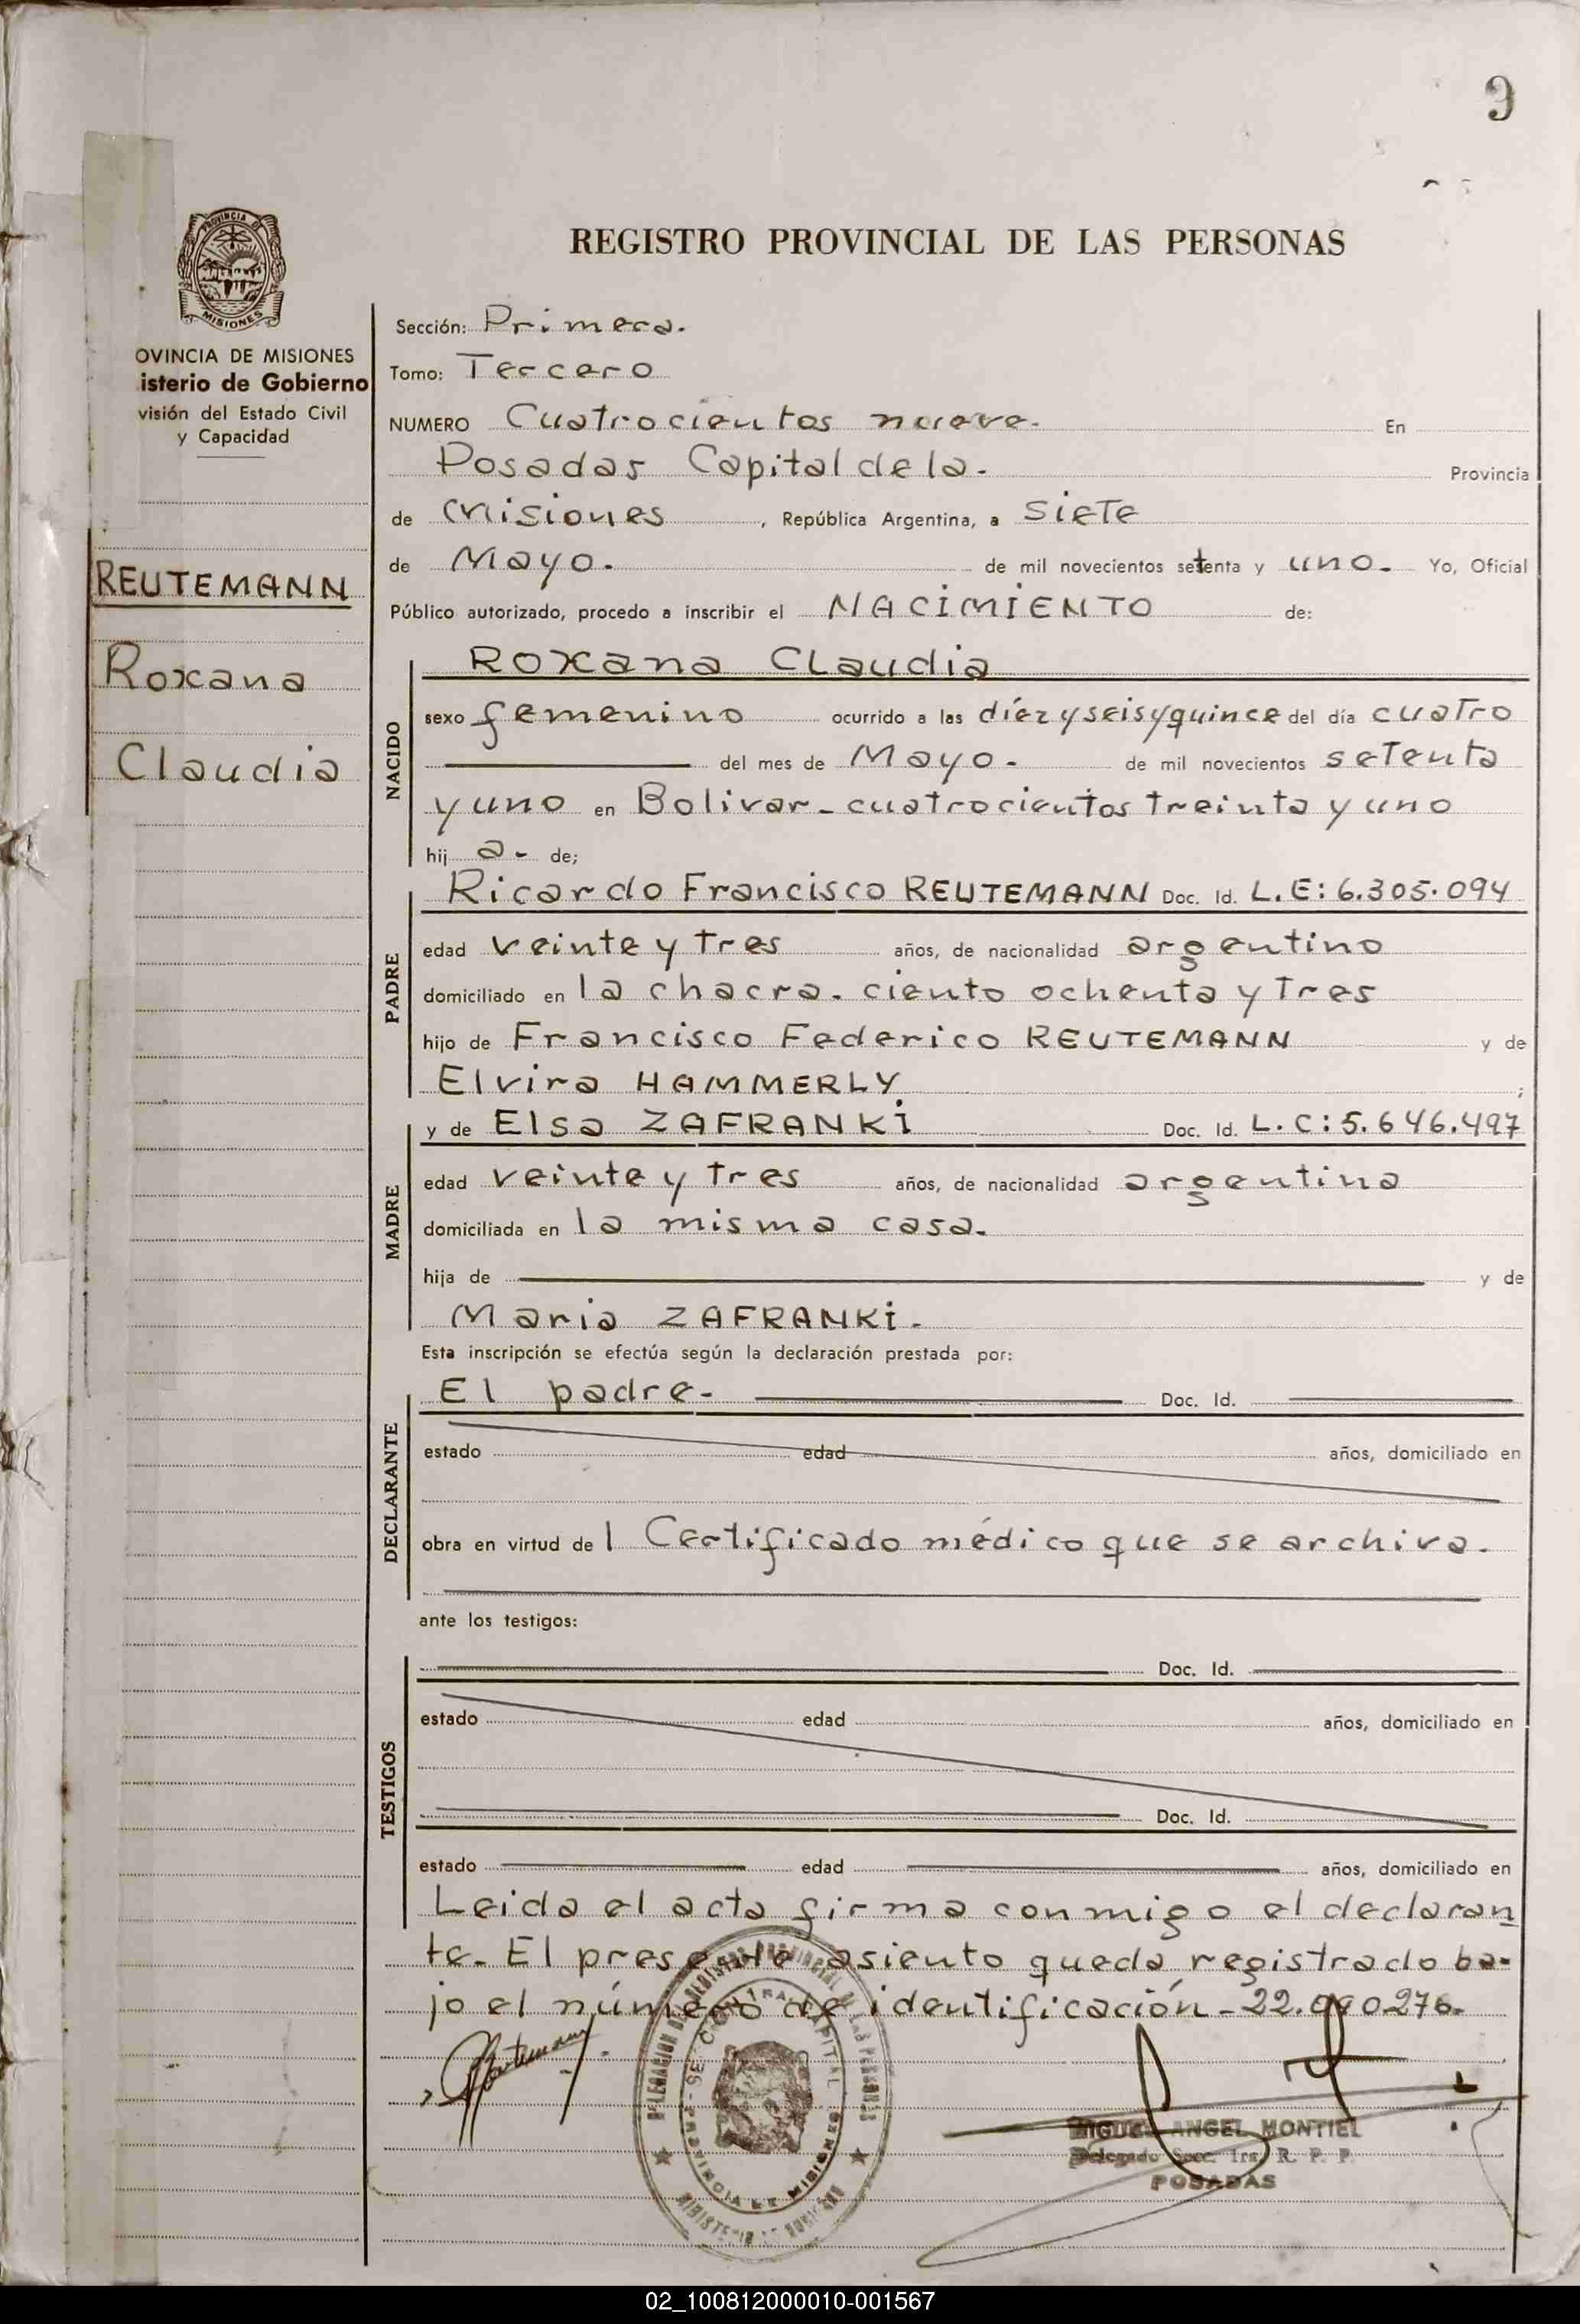 9
PROVINCIA DE
MISIONES
OVINCIA DE MISIONES
isterio de Gobierno
visión del Estado Civil
y Capacidad
REUTEMANN
Roxana
Claudia
REGISTRO PROVINCIAL DE LAS PERSONAS
Sección: Primera.
Tomo: Tercero
NUMERO Cuatrocientos nueve. En
Posadas Capital de la. Provincia
de Misiones, República Argentina, a siete
de Mayo. de mil novecientos setenta y uno. Yo, Oficial
Público autorizado, procedo a inscribir el NACIMIENTO de:
NACIDO
Roxana Claudia
sexo femenino ocurrido a las diez y seis y quince del día cuatro
del mes de Mayo. de mil novecientos setenta
y uno en Bolivar - cuatrocientos treinta y uno
hij a. de;
PADRE
Ricardo Francisco REUTEMANN Doc. Id. L.E: 6.305.094
edad veinte y tres años, de nacionalidad argentino
domiciliado en la chacra. ciento ochenta y tres
hijo de Francisco Federico REUTEMANN y de
Elvira HAMMERLY ;
MADRE
y de Elsa ZAFRANKI Doc. Id. L.C: 5.646.497
edad veinte y tres años, de nacionalidad argentina
domiciliada en la misma casa.
hija de y de
Maria ZAFRANKI.
Esta inscripción se efectúa según la declaración prestada por:
DECLARANTE
El padre. Doc. Id.
estado edad años, domiciliado en
obra en virtud del Certificado médico que se archiva.
ante los testigos:
TESTIGOS
Doc. Id.
estado edad años, domiciliado en
Doc. Id.
estado edad años, domiciliado en
Leida el acta firma conmigo el declaran
te. El presente asiento queda registrado ba-
jo el número de identificación - 22.090276.
DELEGACION DEL REGISTRO PROVINCIAL DE LAS PERSONAS
PROVINCIA DE MISIONES
MIGUEL ANGEL MONTIEL
Delegado Secc. 1ra. R. P. P.
POSADAS
02_100812000010-001567